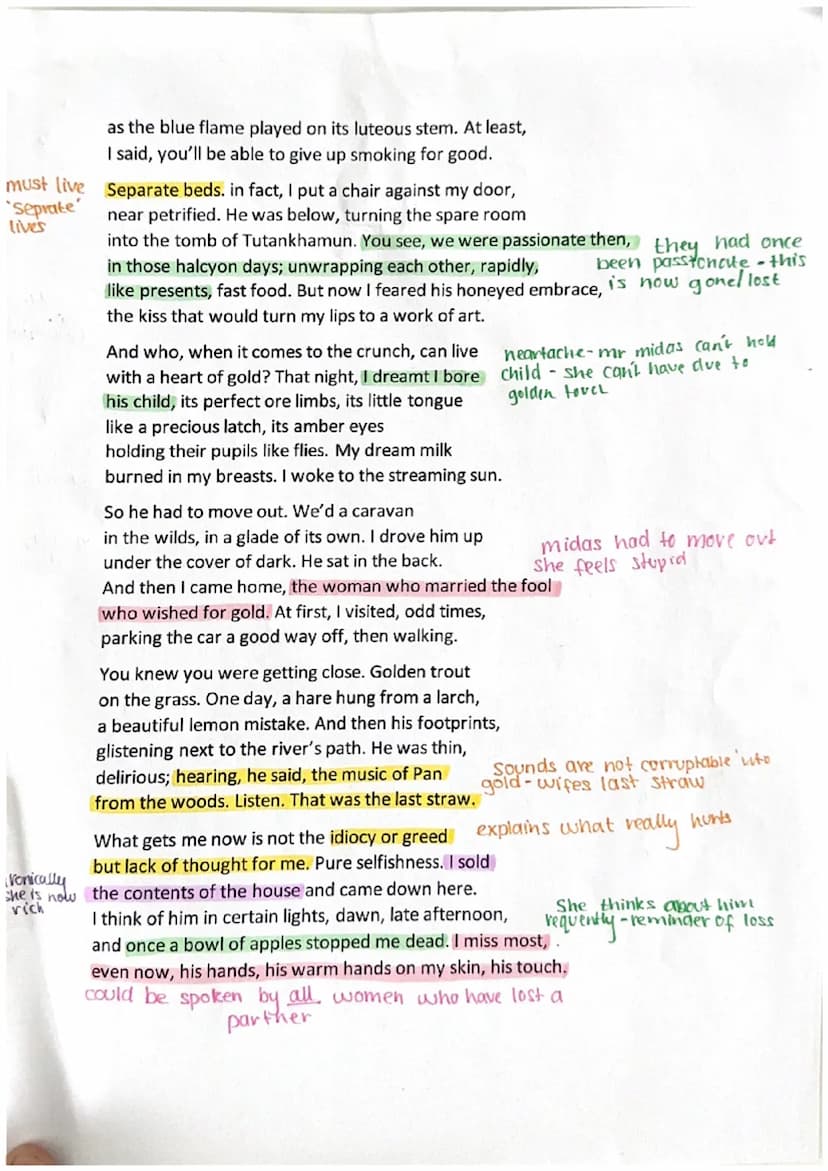 as the blue flame played on its luteous stem. At least,
I said, you'll be able to give up smoking for good.
must live
'Seprate'
lives
Separate beds. in fact, I put a chair against my door,
near petrified. He was below, turning the spare room
into the tomb of Tutankhamun. You see, we were passionate then,
in those halcyon days; unwrapping each other, rapidly,
like presents, fast food. But now I feared his honeyed embrace,
the kiss that would turn my lips to a work of art.
they had once
been passionate - this
is now gone/lost
And who, when it comes to the crunch, can live
with a heart of gold? That night, I dreamt I bore
his child, its perfect ore limbs, its little tongue
like a precious latch, its amber eyes
holding their pupils like flies. My dream milk
burned in my breasts. I woke to the streaming sun.
heartache - mr midas can't hold
child - she can't have due to
golden touch
So he had to move out. We'd a caravan
in the wilds, in a glade of its own. I drove him up
under the cover of dark. He sat in the back.
And then I came home, the woman who married the fool
who wished for gold. At first, I visited, odd times,
parking the car a good way off, then walking.
midas had to move out
she feels stupid
You knew you were getting close. Golden trout
on the grass. One day, a hare hung from a larch,
a beautiful lemon mistake. And then his footprints,
glistening next to the river's path. He was thin,
delirious; hearing, he said, the music of Pan
from the woods. Listen. That was the last straw.
Sounds are not corruptable into
gold - wifes last straw
What gets me now is not the idiocy or greed
but lack of thought for me. Pure selfishness. I sold
the contents of the house and came down here.
I think of him in certain lights, dawn, late afternoon,
and once a bowl of apples stopped me dead. I miss most,
even now, his hands, his warm hands on my skin, his touch.
explains what really hurts
ironically
she is now
rich
She thinks about him
requently - reminder of loss
could be spoken by all women who have lost a
partner